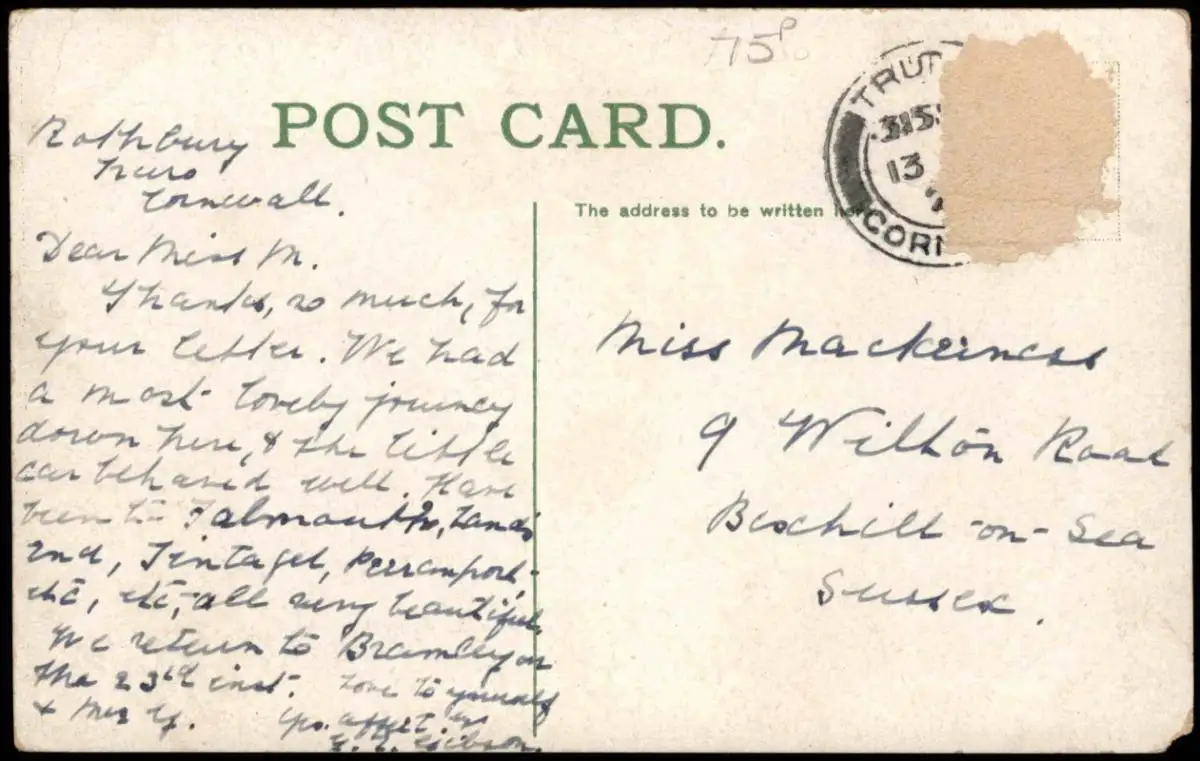 75p
POST CARD.
TRU
3 15
13
CORN
The address to be written here
Rothbury
Truro
Cornwall.
Dear Miss M.
Thanks, so much, for
your letter. We had
a most lovely journey
down here, & the little
car behaved well. Have
been to Falmouth, Lands
End, Tintagel, Perranport
etc, etc, all very beautiful.
We return to Bramley on
the 23rd inst. Love to yourself
& Mrs Y.
Yrs. affect.
Gibson.
Miss Mackerness
9 Wilton Road
Bexhill-on-Sea
Sussex.